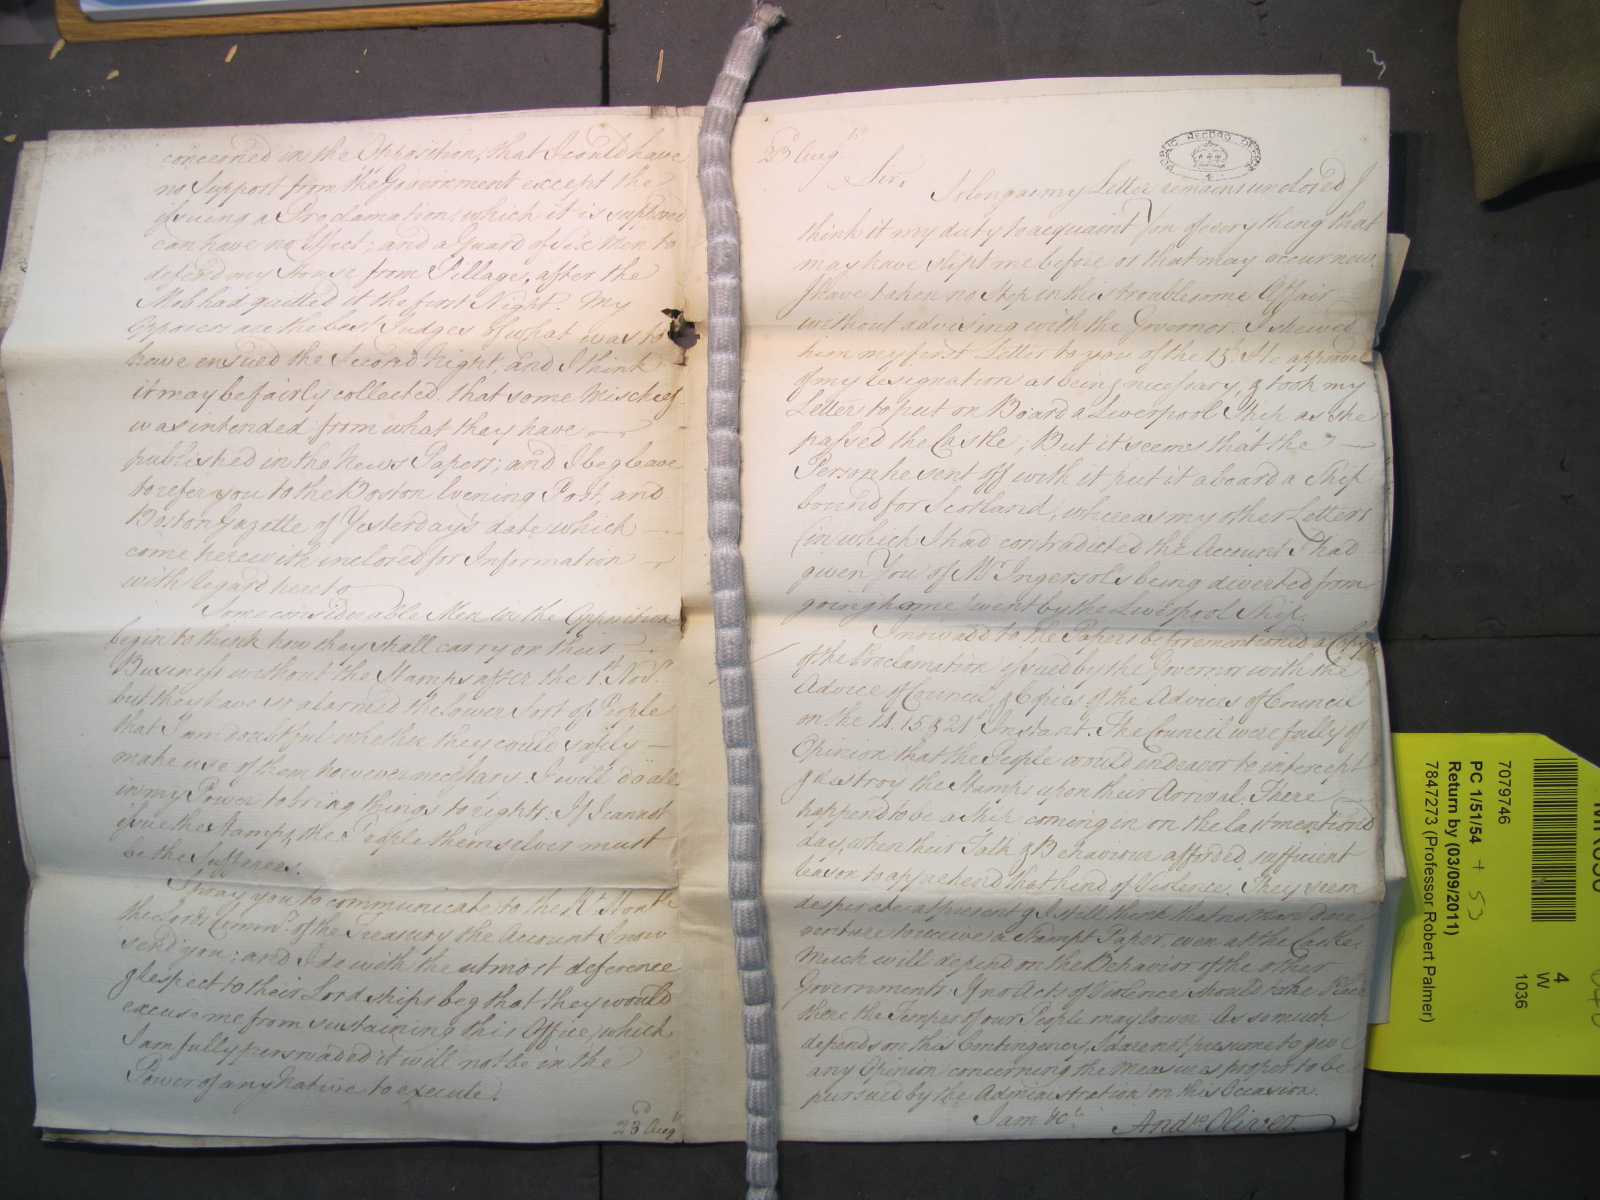 concerned in the Opposition, that I could have
no Support from the Government except the
issuing a Proclamation, which it is supposed
can have no Effect; and a Guard of Six Men to
defend my House from Pillage, after the
Mob had quitted it the first Night. My
Opposers are the best Judges of what was to
have ensued the Second Night, and I think
it may be fairly collected that some Mischief
was intended from what they have
published in the News Papers; and I beg leave
to refer you to the Boston Evening Post, and
Boston Gazette of Yesterday's date which
come herewith inclosed for Information
with regard hereto
Some considerable Men in the Opposition
begin to think how they shall carry on their
Business without the Stamps after the 1st Novr.
but they have so alarmed the lower Sort of People
that I am doubtful whether they could safely
make use of them however necessary. I will do all
in my Power to bring things to rights. If I cannot
issue the Stamps, the People themselves must
be the Sufferers.
I pray you to communicate to the Rt. Honble
the Lords Commrs. of the Treasury the Account I now
send you; and I do with the utmost deference
& respect to their Lordships beg that they would
excuse me from sustaining this Office, which
I am fully perswaded it will not be in the
Power of any Native to execute.
23d Augt
23 Augt.
PUBLIC RECORD OFFICE
Sir,
So long as my Letter remains unclosed I
think it my duty to acquaint You of every thing that
may have slipt me before or that may occur new.
I have taken no Step in this troublesome Affair
without advising with the Governor. I shewed
him my first Letter to you of the 15th. He approved
of my resignation as being necessary, & took my
Letter to put on Board a Liverpool Ship as she
passed the Castle; But it seems that the
Person he sent off with it put it aboard a Ship
bound for Scotland, whereas my other Letters
(in which I had contradicted the Account I had
given You of Mr. Ingersol's being diverted from
going home) went by the Liverpool Ship.
I now add to the Papers beforementioned a Copy
of the Proclamation issued by the Governor with the
Advice of Council, & Copies of the Advices of Council
on the 14. 15 & 21st. Instant. The Council were fully of
Opinion that the People would endeavor to intercept
& destroy the Stamps upon their Arrival. There
happend to be a Ship coming in on the last mentioned
day, when their Talk & Behaviour afforded sufficient
reason to apprehend that kind of Violence. They seem
desperate at present & I still think that no man dare
venture to receive a Stampt Paper, even at the Castle.
Much will depend on the Behavior of the other
Governments. If no Acts of Violence should take Place
there the Temper of our People may lower. As so much
depends on this Contingency, I dare not presume to give
any Opinion concerning the Measures proper to be
pursued by the Administration on this Occasion.
I am &c.
Andw Oliver
7079746
PC 1/51/54 + 53
Return by (03/09/2011)
7847273 (Professor Robert Palmer)
4
W
1036